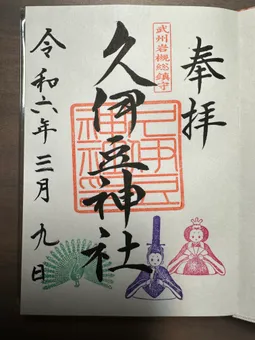 奉拝
武州岩槻総鎮守
久伊豆神社
令和六年三月九日